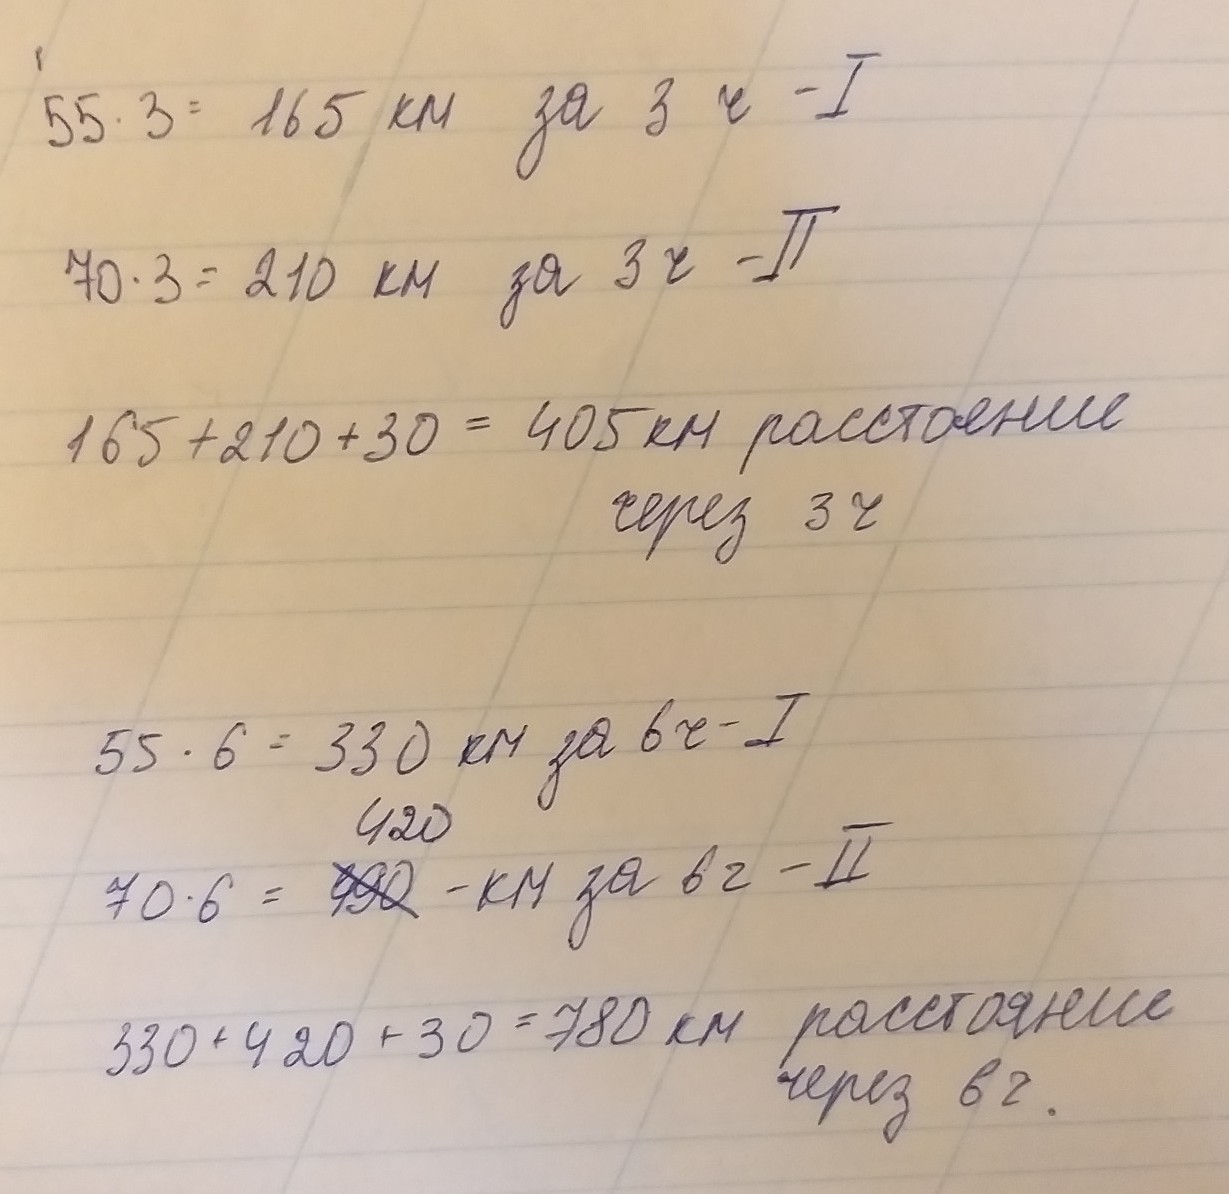 55·3= 165 км за 3 ч -I
70·3= 210 км за 3ч -II
165+210+30 = 405км расстояние
через 3ч
55·6= 330 км за 6ч-I
420
70·6= -км за 6ч -II
330+420+30=780 км расстояние
через 6ч.